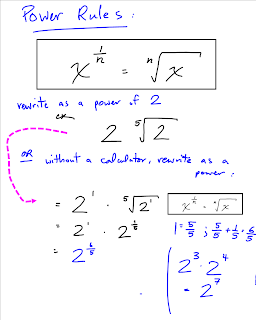 Power Rules:
x^(1/n) = ⁿ√x
rewrite as a power of 2
ex
2 ⁵√2
OR without a calculator, rewrite as a power:
= 2¹ · ⁵√2¹
x^(1/n) = ⁿ√x
= 2¹ · 2^(1/5)
1 = 5/5 ; 5/5 + 1/5 = 6/5
= 2^(6/5)
2³ · 2⁴
= 2⁷